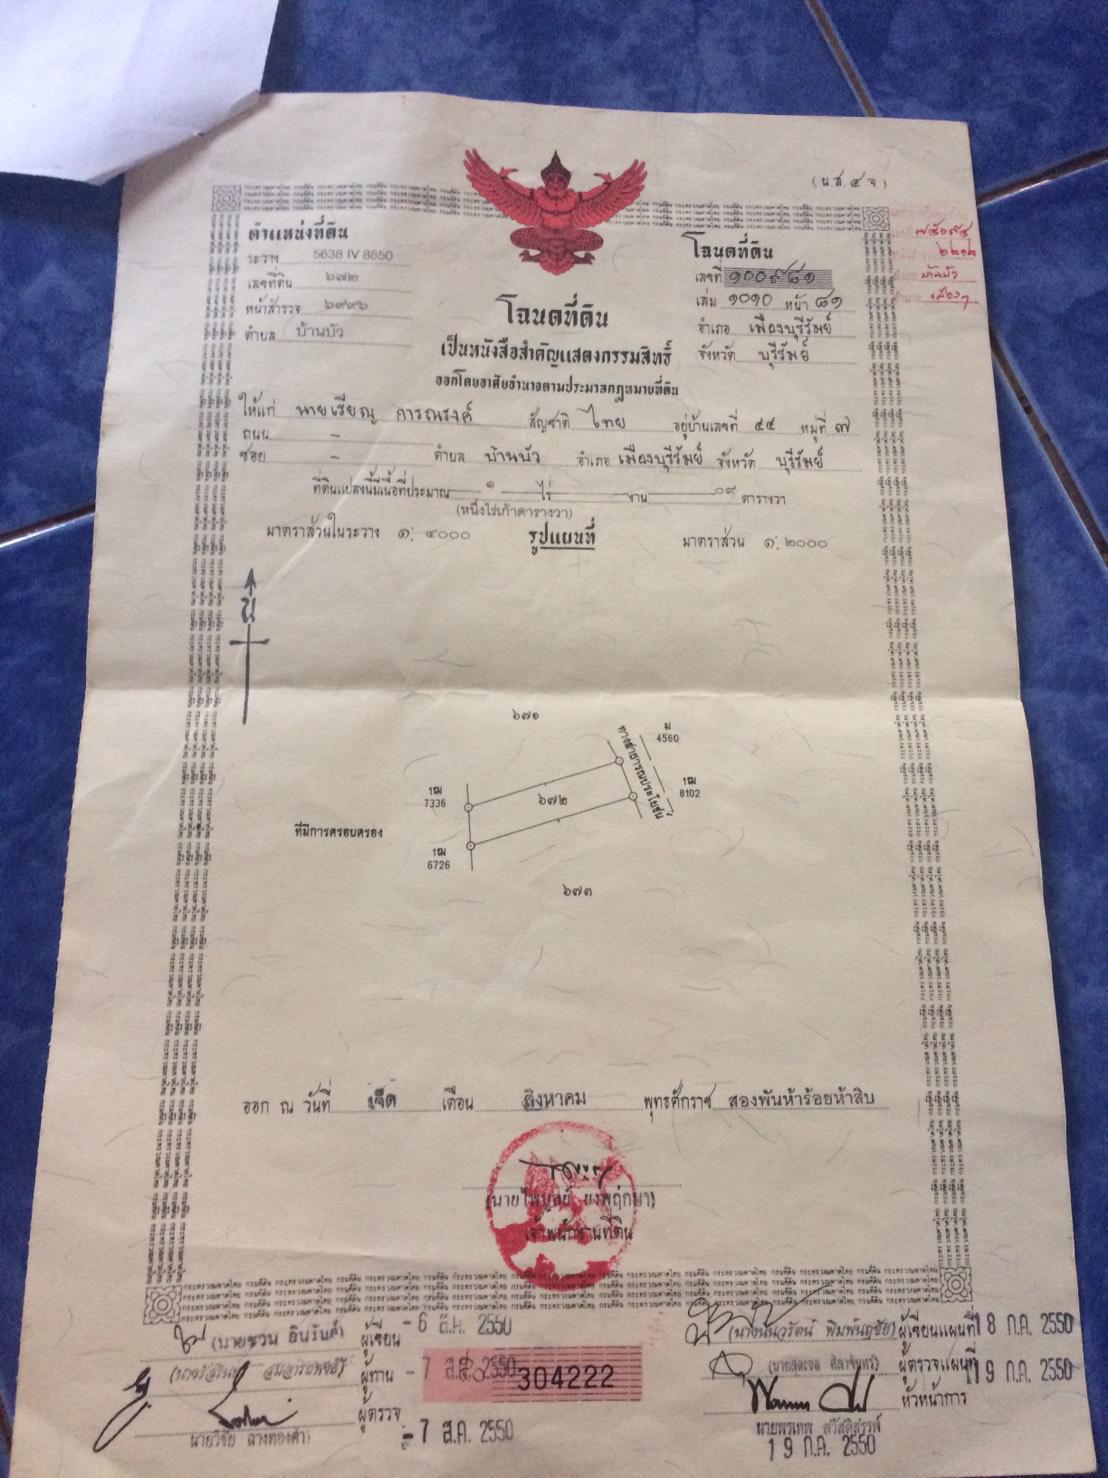 (น.ส.๔ จ)
ตำแหน่งที่ดิน
ระวาง 5638 IV 8850
เลขที่ดิน ๖๗๒
หน้าสำรวจ ๖๙๙๖
ตำบล บ้านบัว
โฉนดที่ดิน
เลขที่ ๑๐๐๙๘๑
เล่ม ๑๐๑๐ หน้า ๘๑
อำเภอ เมืองบุรีรัมย์
จังหวัด บุรีรัมย์
๒๒๑๒
บ้านบัว
เมืองฯ
โฉนดที่ดิน
เป็นหนังสือสำคัญแสดงกรรมสิทธิ์
ออกโดยอาศัยอำนาจตามประมวลกฎหมายที่ดิน
ให้แก่ นายเรียญ การณรงค์ สัญชาติ ไทย อยู่บ้านเลขที่ ๕๕ หมู่ที่ ๗
ถนน -
ซอย - ตำบล บ้านบัว อำเภอ เมืองบุรีรัมย์ จังหวัด บุรีรัมย์
ที่ดินแปลงนี้มีเนื้อที่ประมาณ ๑ ไร่ - งาน ๐๙ ตารางวา
(หนึ่งไร่เก้าตารางวา)
มาตราส่วนในระวาง ๑: ๔๐๐๐ รูปแผนที่ มาตราส่วน ๑: ๒๐๐๐
น
๖๗๑
ม
4560
ทางสาธารณประโยชน์
1ฒ
8102
1ฒ
7336
๖๗๒
ที่มีการครอบครอง
1ฒ
6726
๖๗๓
ออก ณ วันที่ เจ็ด เดือน สิงหาคม พุทธศักราช สองพันห้าร้อยห้าสิบ
(นายไพบูลย์ ยงพฤกษา)
เจ้าพนักงานที่ดิน
(นายชวน อินรันต์) ผู้เขียน - 6 ส.ค. 2550
ผู้ทาน - 7 ส.ค. 2550
304222
ผู้ตรวจ - 7 ส.ค. 2550
นายวิชัย ฉางทองคำ
(นางนันวรัตน์ พิมพ์นฤชัย) ผู้เขียนแผนที่ 18 ก.ค. 2550
ผู้ตรวจแผนที่ 19 ก.ค. 2550
หัวหน้าการ
นายพรเทพ สวัสดิสรรพ์
19 ก.ค. 2550